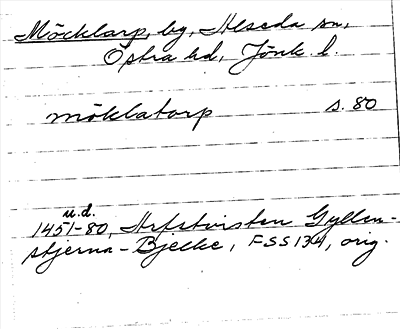 Möcklarp, by, Alseda sn,
Östra hd, Jönk. l.
möklatorp s. 80
u.d.
1451-80, Arfstvisten Gyllen-
stjerna-Bjelke, FSS 134, orig.